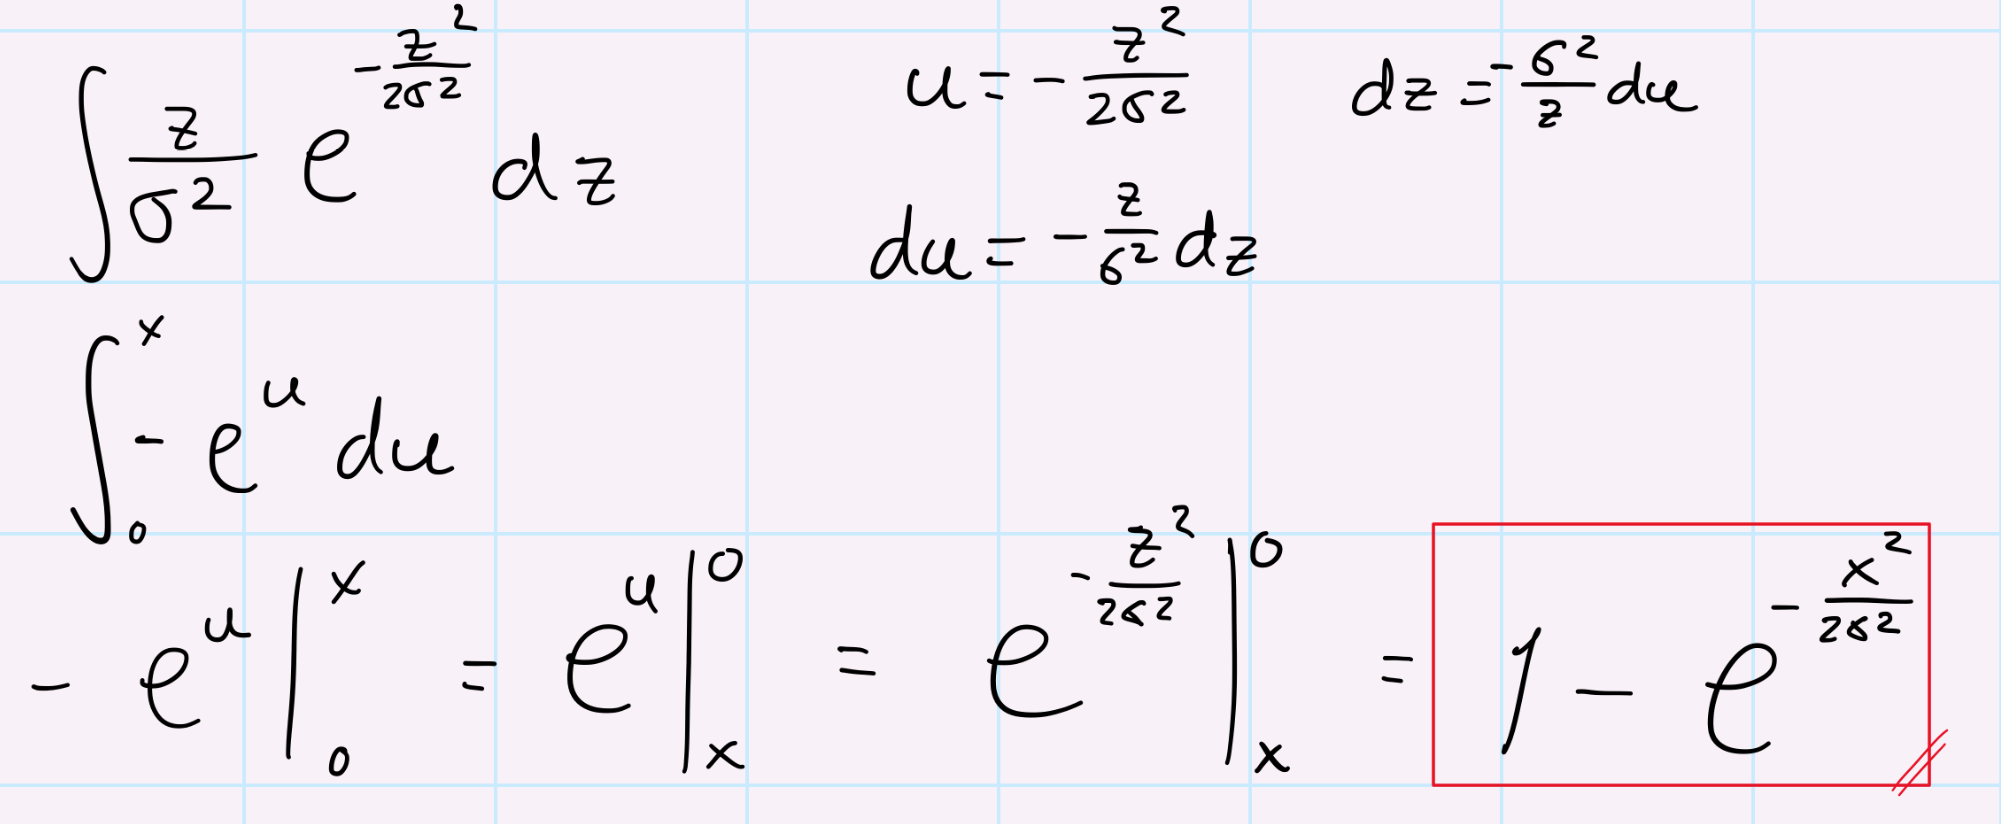 ∫ z/σ² e^(-z²/2σ²) dz    u = -z²/2σ²    dz = -σ²/z du
du = -z/σ² dz
∫₀ˣ -e^u du
-e^u |₀ˣ = e^u |ₓ⁰ = e^(-z²/2σ²) |ₓ⁰ = 1 - e^(-x²/2σ²)